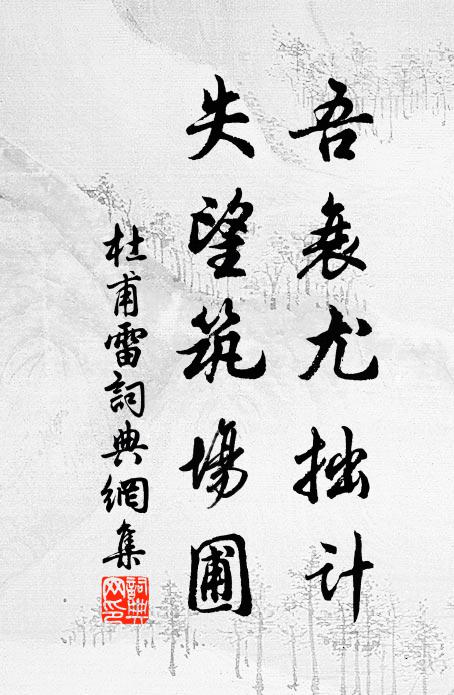 吾衰尤拙计
失望筑場圃
杜甫雷詞典網集